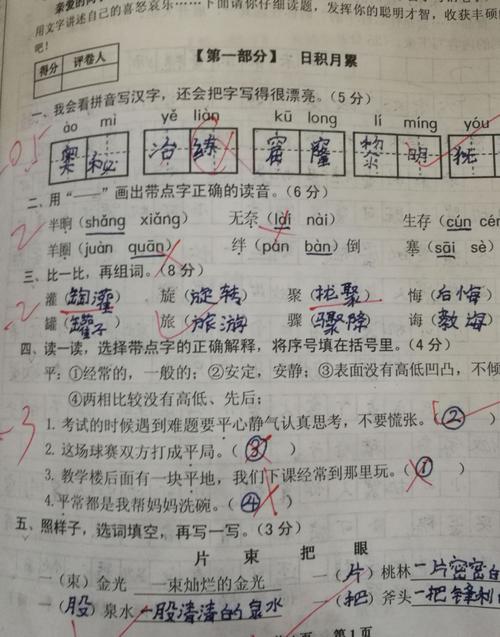 用文字讲述自己的喜怒哀乐……下面请你仔细读题，发挥你的聪明才智，收获丰硕
吧！
得分 评卷人
【第一部分】 日积月累
一、我会看拼音写汉字，还会把字写得很漂亮。（5分）
ào mì yě liàn kū long lí míng yóu
奥秘 冶练 窟窿 明 犹
-0.5
二、用“——”画出带点字正确的读音。（6分）
-2
半晌（shǎng xiǎng） 无奈（lài nài） 生存（cún cén
羊圈（juàn quān） 绊（pán bàn）倒 塞（sāi sè）
三、比一比，再组词。（8分）
-2
灌（灌） 旋（旋转） 聚（拢聚） 悔（后悔）
罐（罐子） 旅（旅游） 骤（骤降） 诲（教诲）
四、读一读，选择带点字的正确解释，将序号填在括号里。（4分）
平：①经常的，一般的；②安定，安静；③表面没有高低凹凸，不倾
④两相比较没有高低、先后；
-3
1. 考试的时候遇到难题要平心静气认真思考，不要慌张。（②）
2. 这场球赛双方打成平局。（③）
3. 教学楼后面有一块平地，我们下课经常到那里玩。（①）
4. 平常都是我帮妈妈洗碗。（④）
五、照样子，选词填空，再写一写。（3分）
片 束 把 眼
一（束）金光 一束灿烂的金光 一（片）桃林 一片密密的
一（股）泉水 一股清清的泉水 一（把）斧头 一把锋利
第1页